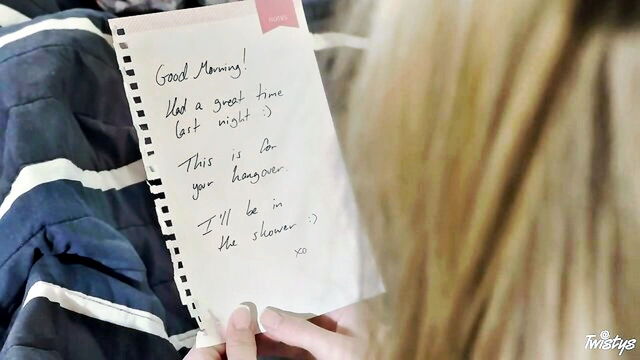 NOTES
Good Morning!
Had a great time
last night :)
This is for
your hangover.
I'll be in
the shower :)
xo
Twistys